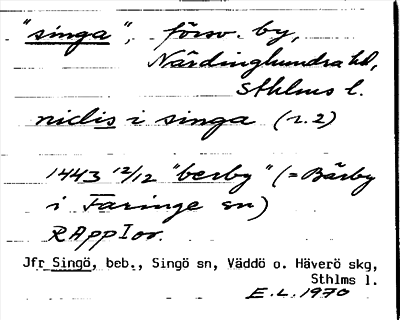 "singa", försv. by,
Närdinghundra hd,
Sthlms l.
niclis i singa (r. 2)
1443 12/12 "berby" (= Bärby
i Faringe sn)
RAppIor.
Jfr Singö, beb., Singö sn, Väddö o. Häverö skg,
Sthlms l.
E.L. 1970